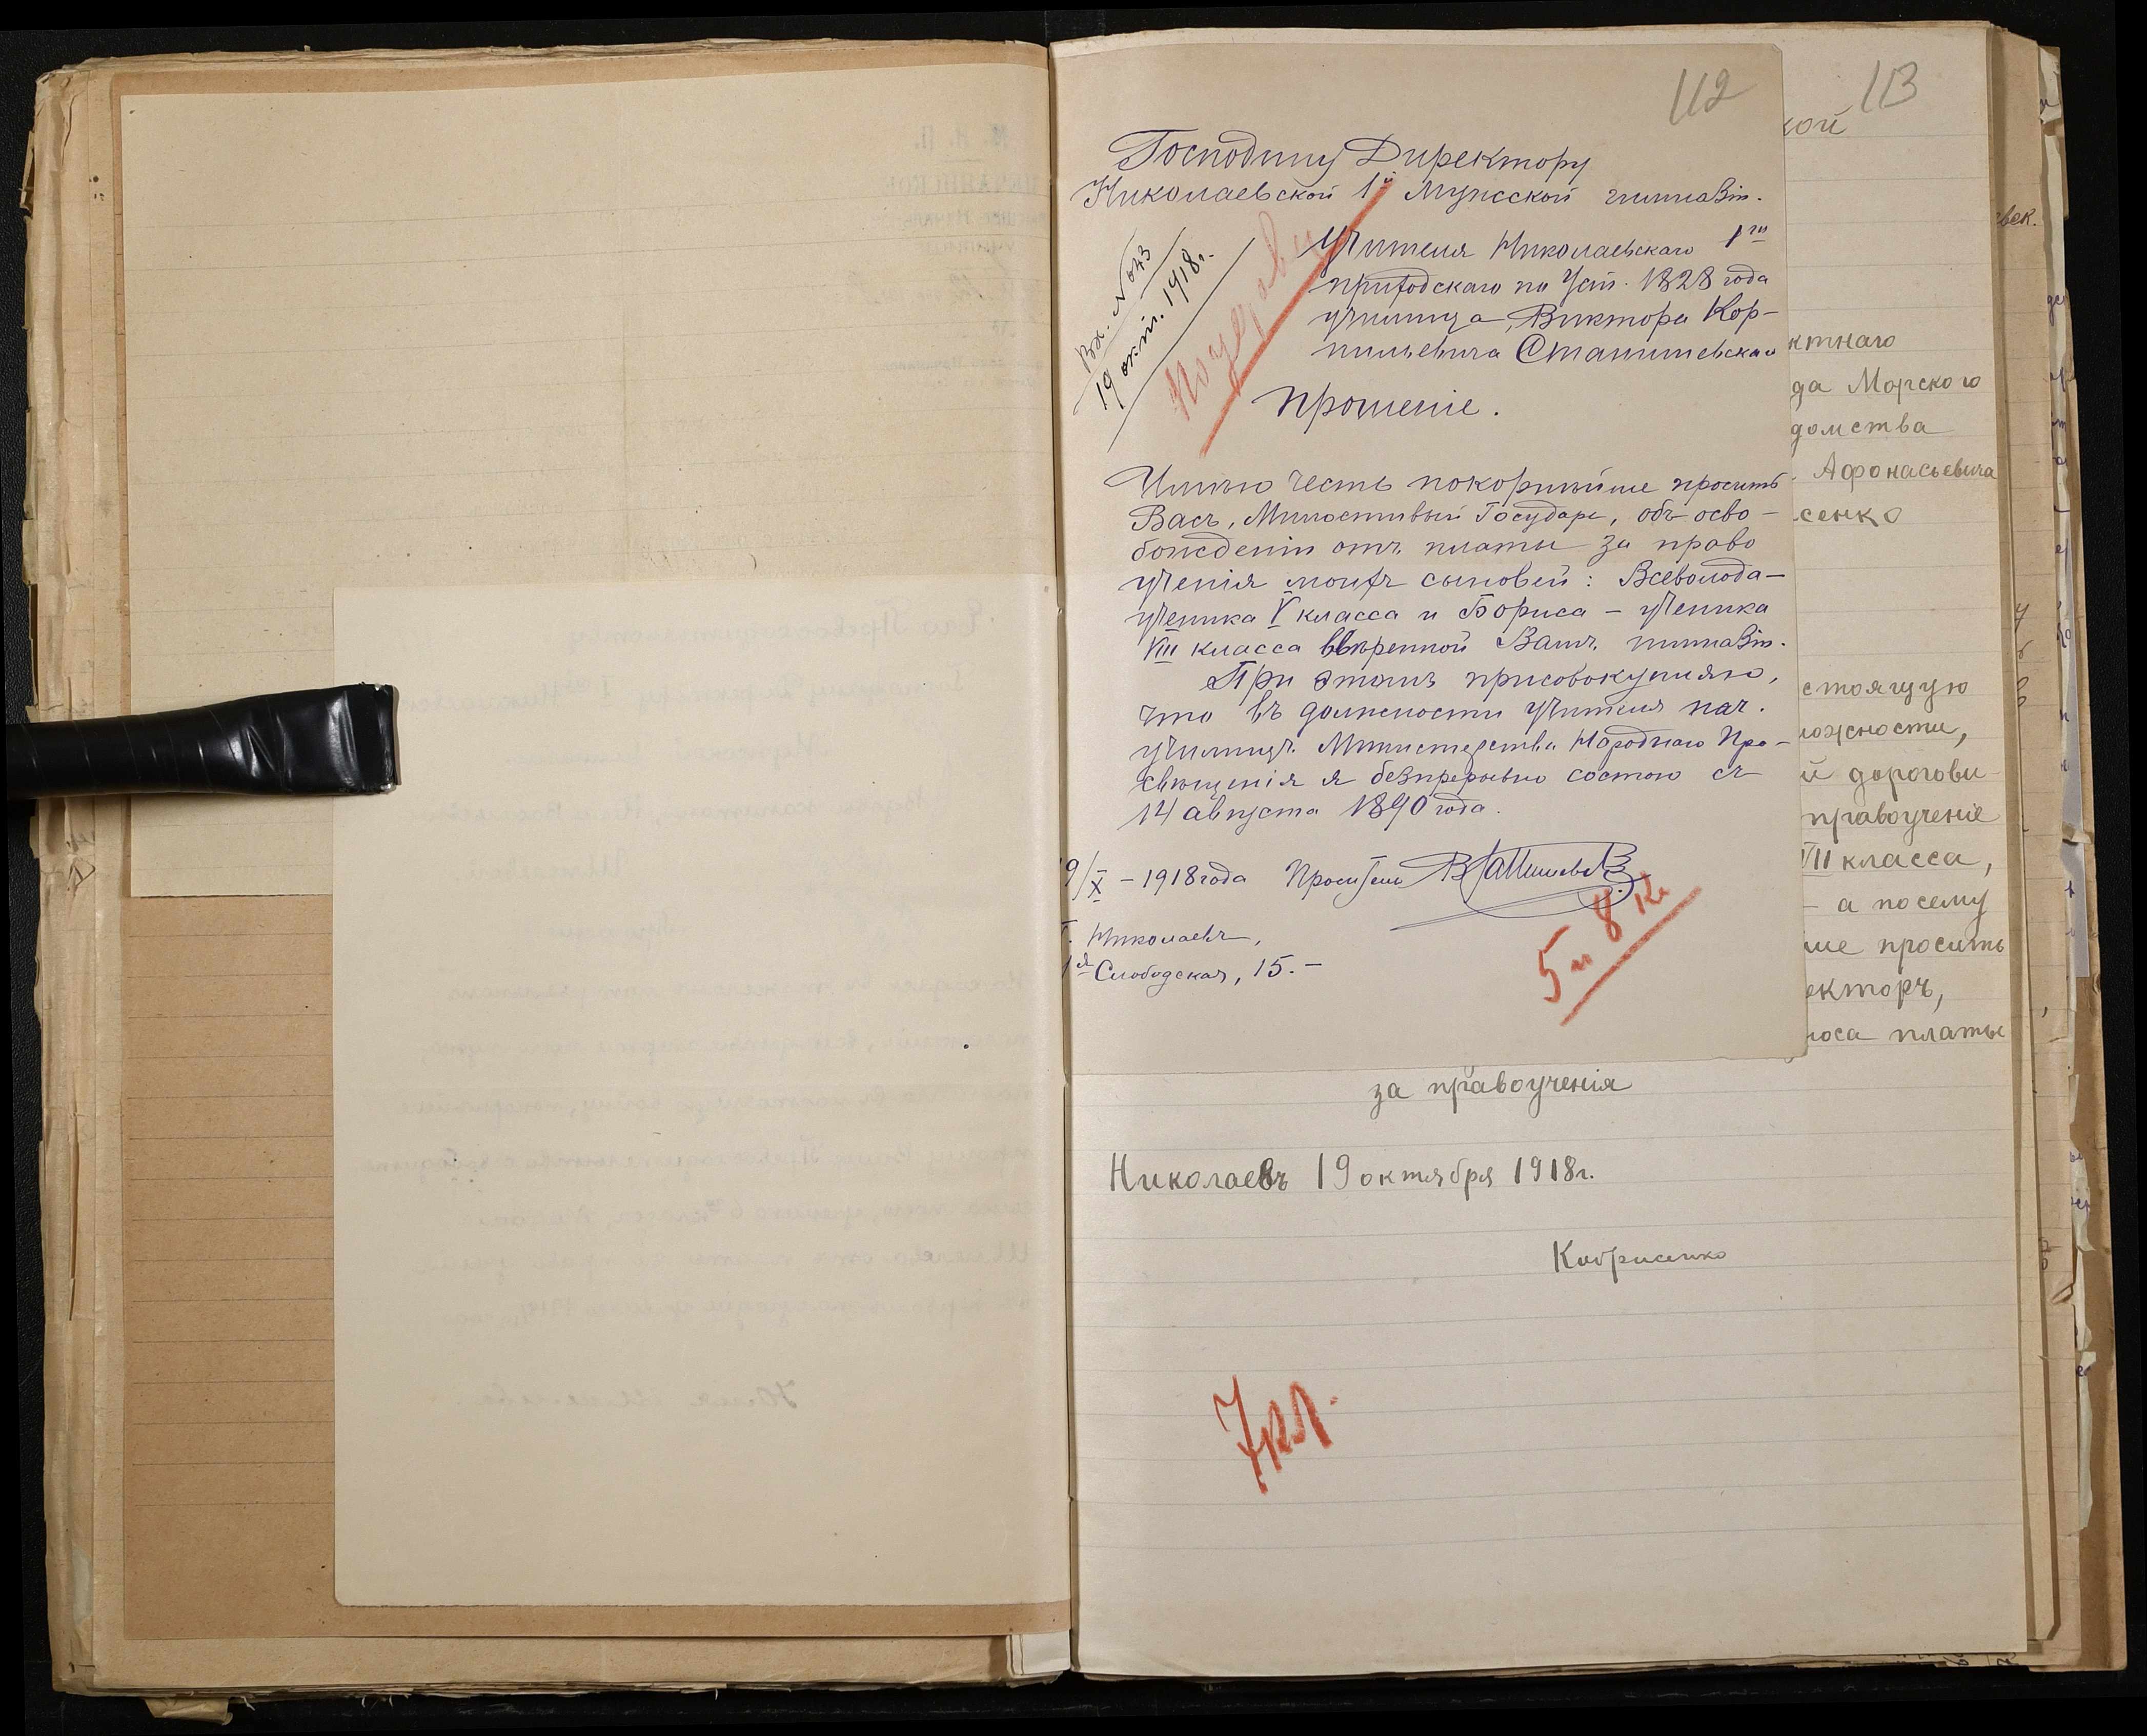 112
Господину Директору
Николаевской 1й Мужской гимназіи.
Вх. №
19 окт. 1918 г.
Учителя Николаевскаго 1го
приходскаго по Уст. 1828 года
училища, Виктора Кор-
нильевича Станишевскаго
Прошеніе.
Имѣю честь покорнѣйше просить
Васъ, Милостивый Государь, объ осво-
божденіи отъ платы за право
ученія моихъ сыновей: Всеволода –
ученика V класса и Бориса – ученика
VIII класса ввѣренной Вамъ гимназіи.
При этомъ присовокупляю,
что въ должности учителя нач.
училищъ Министерства Народнаго Про-
свѣщенія я безпрерывно состою съ
14 августа 1890 года.
9/X – 1918 года Проситель
г. Николаевъ,
1я Слободская, 15. –
5 и 8 кл
113
кой
ктнаго
да Морского
домства
Афонасьевича
сенко
стоящую
ожности,
й дорогови-
правоученіе
VII класса,
– а посему
ше просить
екторъ,
носа платы
за правоученія
Николаевъ 19 октября 1918 г.
7 кл.